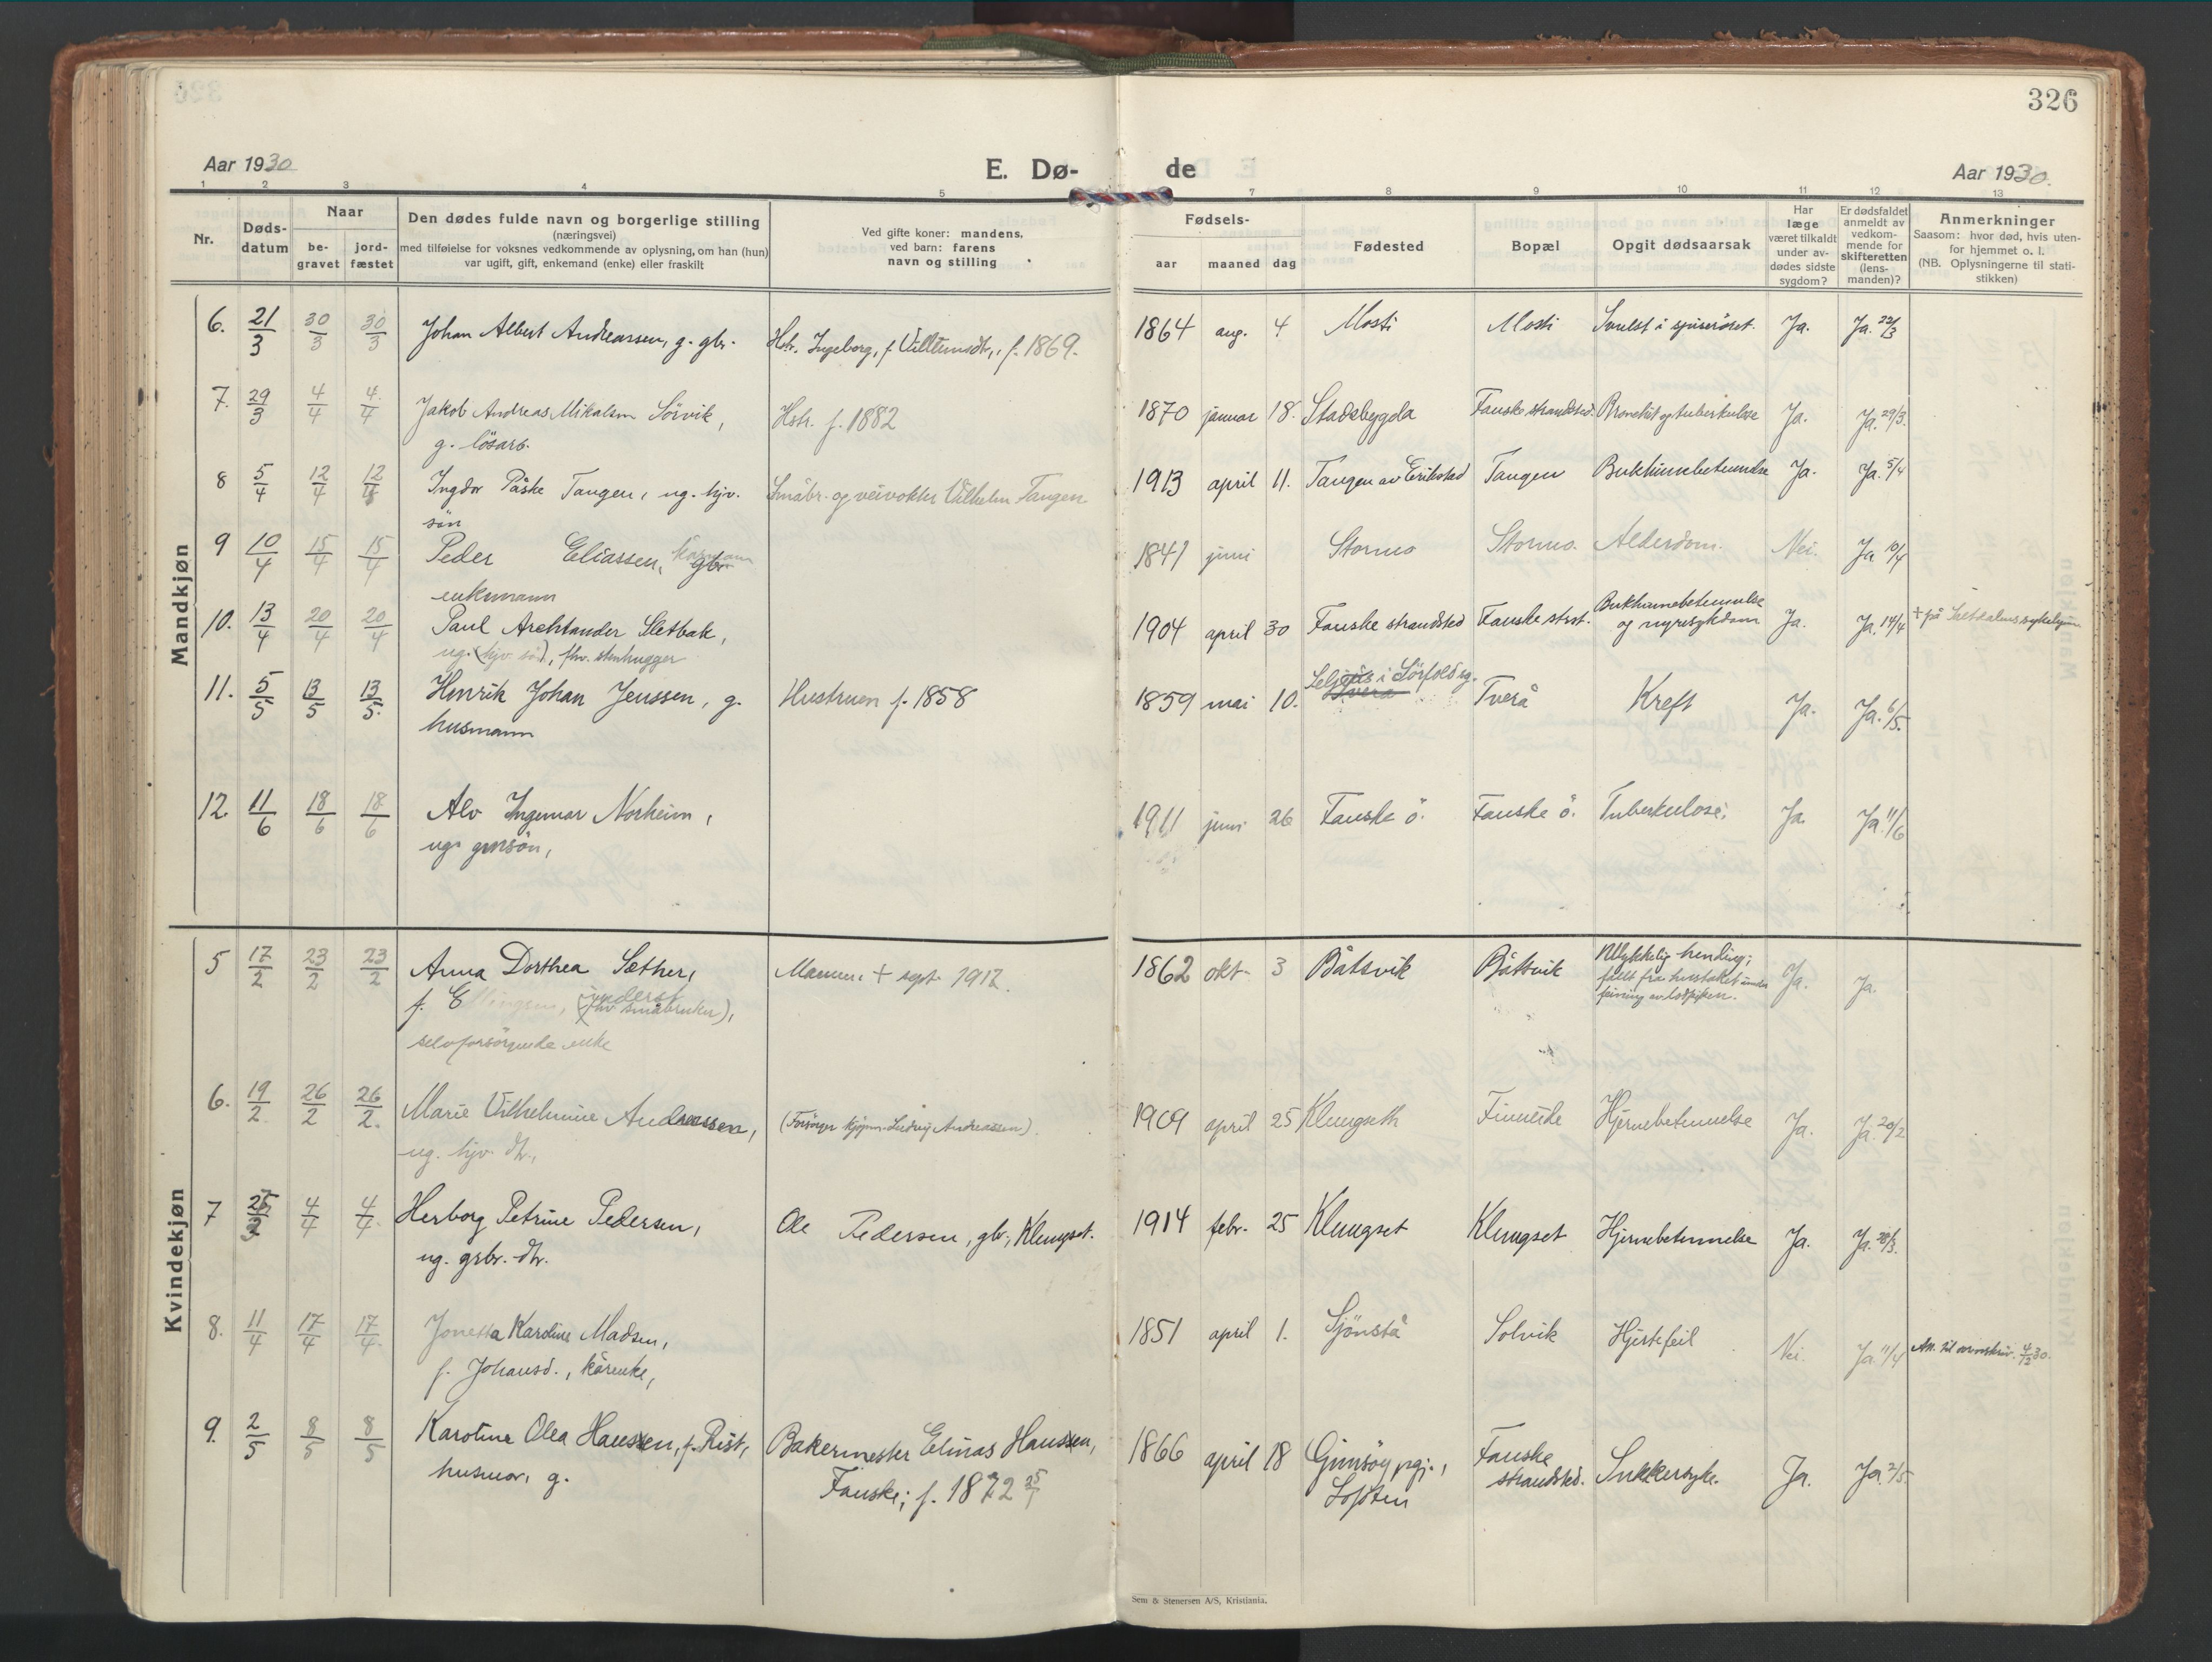 326
Aar 1930
E. Dø-
de
Aar 1930.
1 2 3 4 5 7 8 9 10 11 12 13
Nr.
Døds-
datum
Naar
be-
gravet
jord-
fæstet
Den dødes fulde navn og borgerlige stilling
(næringsvei)
med tilføielse for voksnes vedkommende av oplysning, om han (hun)
var ugift, gift, enkemand (enke) eller fraskilt
Ved gifte koner: mandens,
ved barn: farens
navn og stilling
Fødsels-
aar maaned dag
Fødested
Bopæl
Opgit dødsaarsak
Har
læge
været tilkaldt
under av-
dødes sidste
sygdom?
Er dødsfaldet
anmeldt av
vedkom-
mende for
skifteretten
(lens-
manden)?
Anmerkninger
Saasom: hvor død, hvis uten-
for hjemmet o. l.
(NB. Oplysningerne til stati-
stikken)
Mandkjøn
6. 21/3 30/3 30/3 Johan Albert Andreassen, g. gbr. Hstr. Ingeborg, f. Villumsdtr., f. 1869. 1864 aug. 4 Mosti Mosti Svulst i spiserøret. Ja. Ja. 22/3
7. 29/3 4/4 4/4 Jakob Andreas Mikalsen Sörvik, Hstr. f. 1882 1870 januar 18. Stadsbygda Fauske strandsted. Bronchit og tuberkulose Ja. Ja. 29/3.
g. lösarb.
8 5/4 12/4 12/4 Ingdor Påske Tangen, ug. hjv. Småbr. og veivokter Vilhelm Tangen 1913 april 11. Tangen av Erikstad Tangen Bukhinnebetennelse Ja. Ja. 5/4
sön
9 10/4 15/4 15/4 Peder Eliassen, kårmann gbr 1841 juni Stormo Stormo. Alderdom. Nei. Ja 10/4
enkemann
10. 13/4 20/4 20/4 Paul Archtander Sletbak, 1904 april 30 Fauske strandsted Fauske strst. Bukhinnebetennelse
og nyresykdom Ja. Ja. 14/4 + på Saltdalens sykehjem
ug. (hjv. sön), fhv. stenhugger
11. 5/5 13/5 13/5. Henrik Johan Jenssen, g. Hustruen f. 1858 1859 mai 10. i Sörfold sg.
Tverå Tverå Kreft Ja. Ja. 6/5.
husmann
12. 11/6 18/6 18/6 Alv Ingemar Norheim, 1911 juni 26 Fauske ö. Fauske ö. Tuberkulose. Ja. Ja 11/6
ug. grbrsön,
Kvindekjøn
5 17/2 23/2 23/2 Anna Dorthea Sæther, Mannen + sept. 1912. 1862 okt. 3 Båtsvik Båtsvik Ulykkelig hending;
falt fra hustaket under
feiing av lodpipen. Ja. Ja.
f. Ellingsen, inderst
(fhv småbruker),
selvforsörgende enke
6. 19/2 26/2 26/2. Marie Vilhelmine Andreassen, (Forsörger kjøpm. Ludvig Andreassen). 1909 april 25 Klungseth Finneide Hjernebetennelse Ja. Ja. 20/2
ug. hjv. dtr.,
7 25/3 4/4 4/4. Herborg Petrine Pedersen, Ole Pedersen, gbr., Klungset. 1914 febr. 25 Klungset Klungset Hjernebetennelse Ja. Ja. 28/3.
ug. grbr. dtr.
8. 11/4 17/4 17/4. Jonetta Karoline Madsen, 1851 april 1. Sjönstå Solvik Hjertefeil Nei. Ja. 11/4 An. til arveskriv. 4/12 30.
f. Johansd., kårenke,
9. 2/5 8/5 8/5 Karoline Olea Hanssen, f. Rist, Bakermester Elinas Hanssen, 1866 april 18 Gimsöy pgj., Fauske
strandsted. Sukkersyke. Ja. Ja 2/5.
husmor, g. Fauske; f. 1872 25/7 Lofoten
Sem & Stenersen A/S, Kristiania.